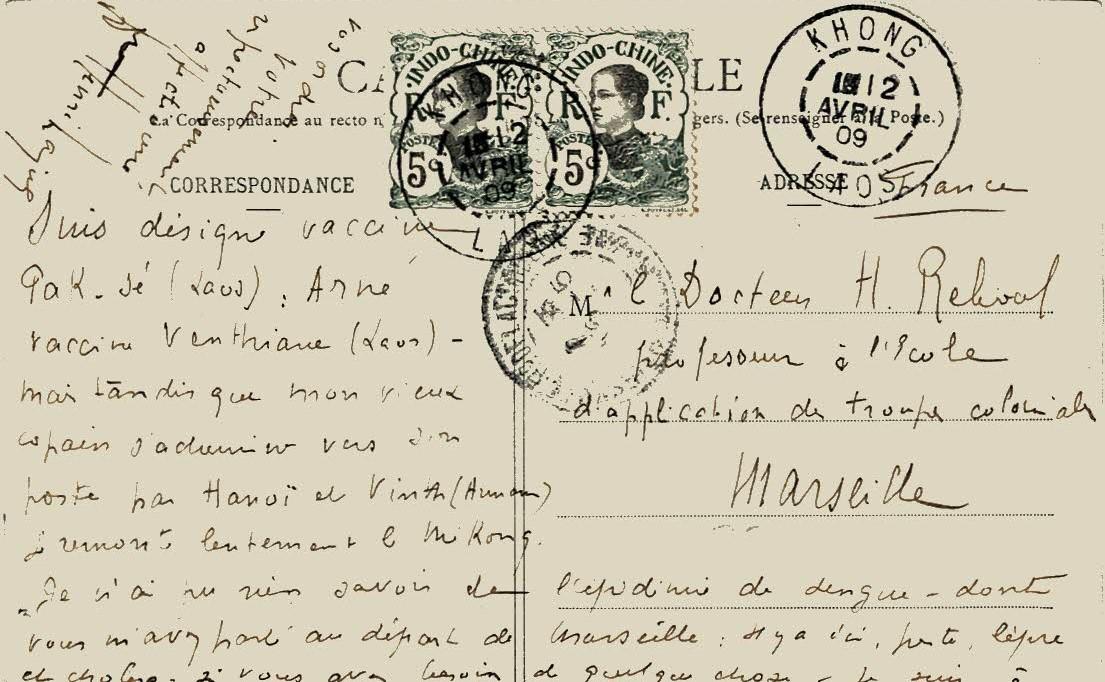 INDO-CHINE
R F
POSTES
5c
INDO-CHINE
R F.
POSTES
5c
KHONG
12
AVRIL
09
LAOS
KHONG
12
AVRIL
09
LAOS
CA LE
La Correspondance au recto n gers. (Se renseigner à la Poste.)
CORRESPONDANCE
ADRESSE
France
Suis désigné vaccine
Pak-sé (Laos) : Arné
vaccine Venthiane (Laos) -
mais tandis que mon vieux
copain s'achemine vers son
poste par Hanoï et Vinth (Annam)
je remonte lentement le Mékong.
Je n'ai pu rien savoir de l'épidémie de dengue - dont
vous m'avez parlé au départ de Marseille : Il y a ici, peste, lèpre
et choléra. si vous avez besoin de quelque chose - je suis à
vos ordres
Votre
M r le Docteur H.
professeur à l'école
d'application de troupes coloniales
Marseille